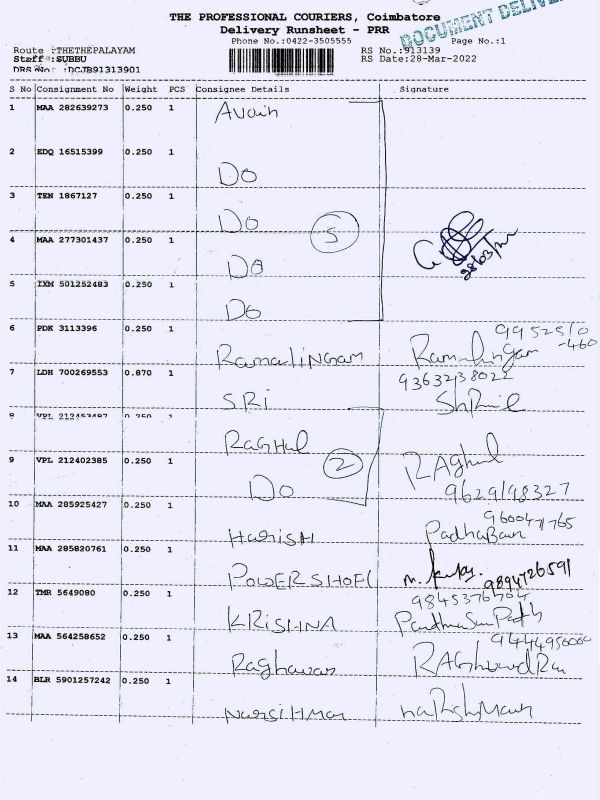 THE PROFESSIONAL COURIERS, Coimbatore
Delivery Runsheet - PRR
DOCUMENT
Phone No.:0422-3505555 Page No.:1
Route :THETHEPALAYAM RS No.:913139
Staff :SUBBU RS Date:28-Mar-2022
DRS No. :DCJB91313901
S No Consignment No Weight PCS Consignee Details Signature
1 MAA 282639273 0.250 1 Avain
2 EDQ 16515399 0.250 1 Do
3 TEN 1867127 0.250 1 Do
5
4 MAA 277301437 0.250 1 Do
28/03/22
5 IXM 501252483 0.250 1 Do
6 PDK 3113396 0.250 1 RamaliNGam Ramalingam 9952510-460
7 LDH 700269553 0.870 1 SRI 9363238022
8 VPL 212453487 0.250 1 RAGHul RAghul
2
9 VPL 212402385 0.250 1 Do 9629198327
10 MAA 285925427 0.250 1 HARISH 9600471765
11 MAA 285820761 0.250 1 9894726591
12 TMR 5649080 0.250 1 KRISHNA 9845376704
13 MAA 564258652 0.250 1 Raghavan
14 BLR 5901257242 0.250 1